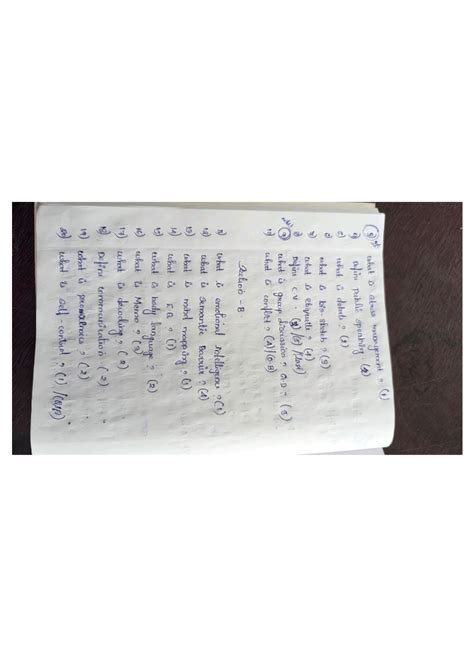 3) what is stress management ? (1)
4) Define public speaking (2)
5) what is debate ? (2)
6) what is life skills ? (2)
7) what is etiquette ? (1)
8) Define C.V -
9) what is group discussion ? G.D ?
10) what is conflict ?
Section - B
what is emotional intelligence ?
12) what is semantic Barrier ?
13) what is mind mapping ? (1)
14) what is E.Q ? (1)
15) what is body language ? (2)
16) what is Memo ? (2)
17) what is decoding ? (2)
18) Define communication. (2)
19) what is ? (2)
20) what is self - control ? (1)